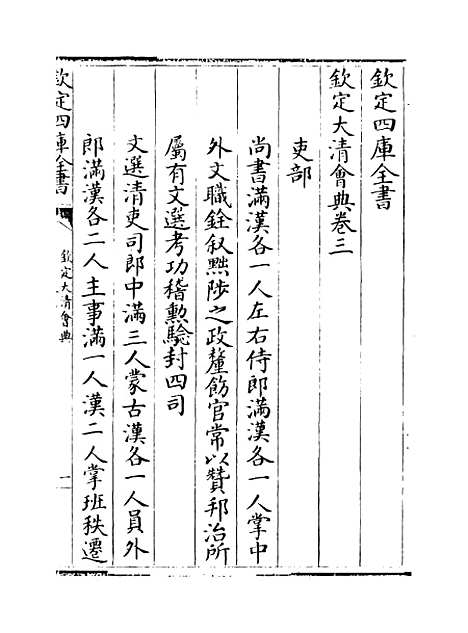 欽定四庫全書
欽定大清會典卷三
吏部
尚書滿漢各一人左右侍郎滿漢各一人掌中
外文職銓叙黜陟之政釐飭官常以贊邦治所
屬有文選考功稽勲驗封四司
文選清吏司郎中滿三人蒙古漢各一人員外
郎滿漢各二人主事滿一人漢二人掌班秩遷
欽定四庫全書
欽定大清會典
一